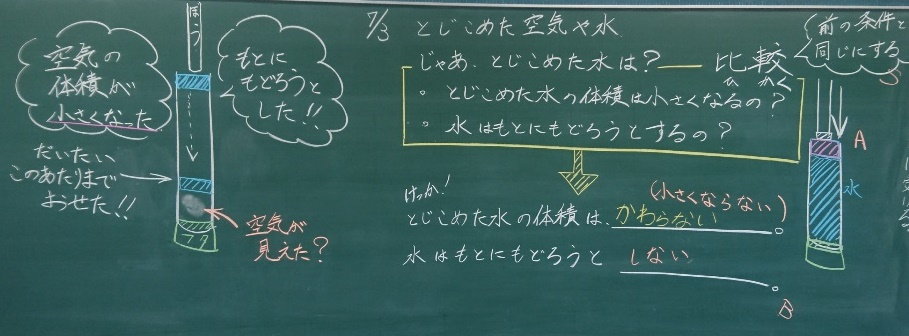 ぼう
空気の
体積が
小さくなった
もとに
もどろうと
した!!
だいたい
このあたりまで
おせた!!
フタ
空気が
見えた?
7/3 とじこめた空気や水
じゃあ、とじこめた水は? 比較
ひ かく
。とじこめた水の体積は小さくなるの?
。水はもとにもどろうとするの?
けっか!
(小さくならない)
とじこめた水の体積は、かわらない。
水はもとにもどろうと しない。
B
前の条件と
同じにする
A
水